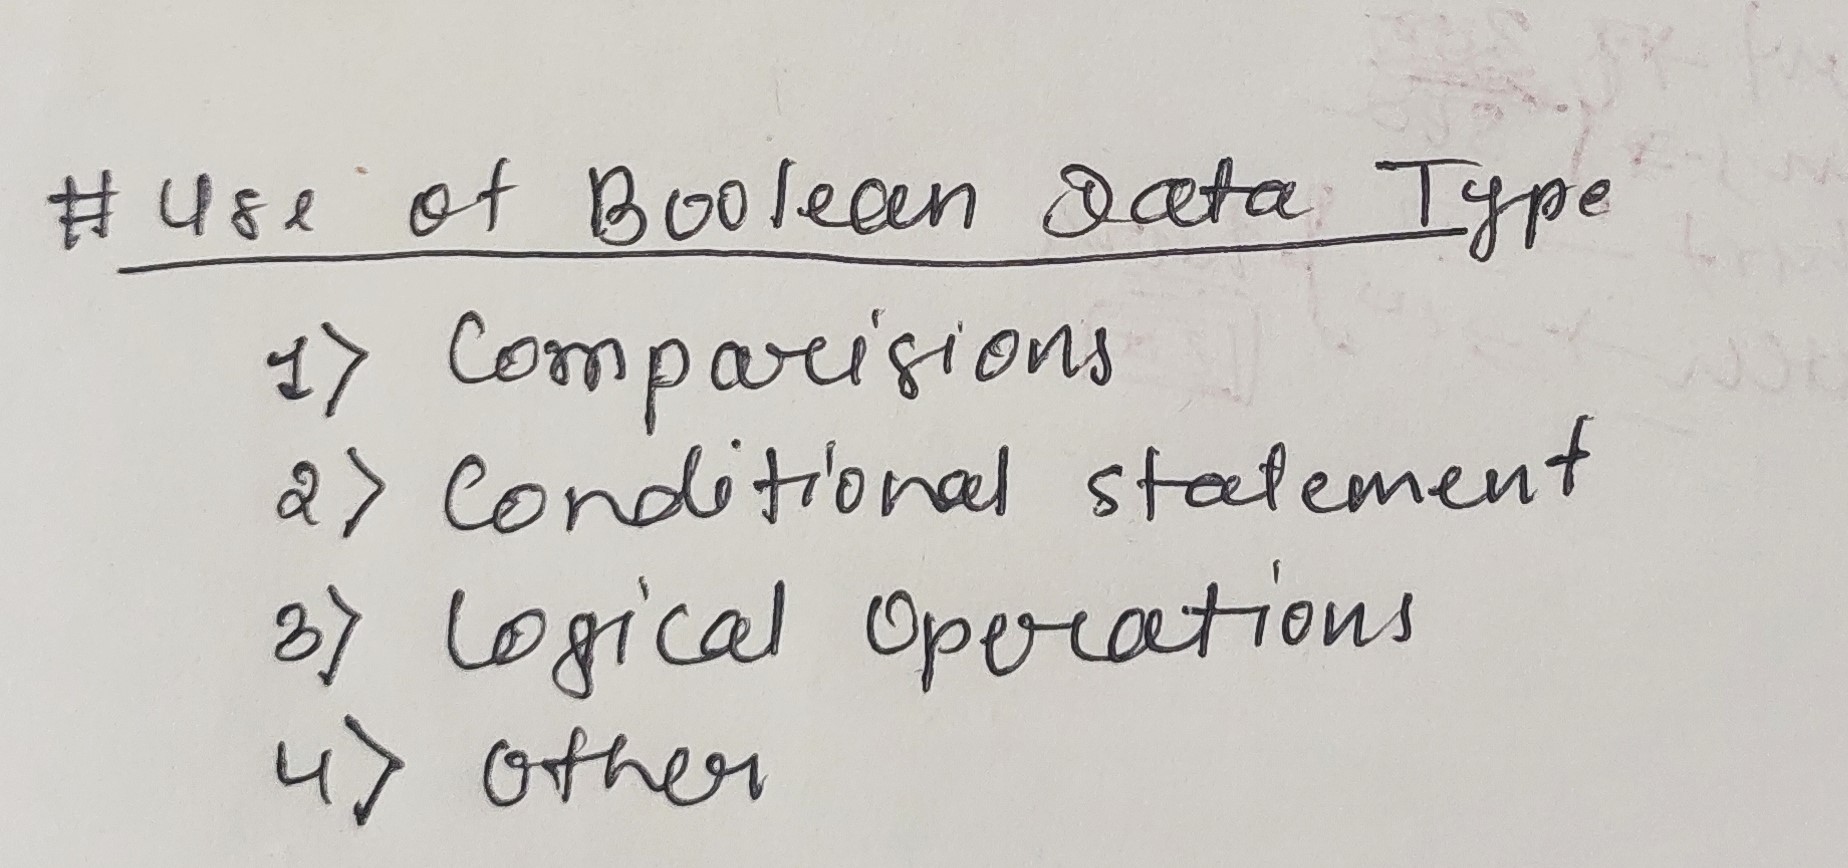 # Use of Boolean Data Type
1) Comparisions
2) Conditional statement
3) Logical Operations
4) Other